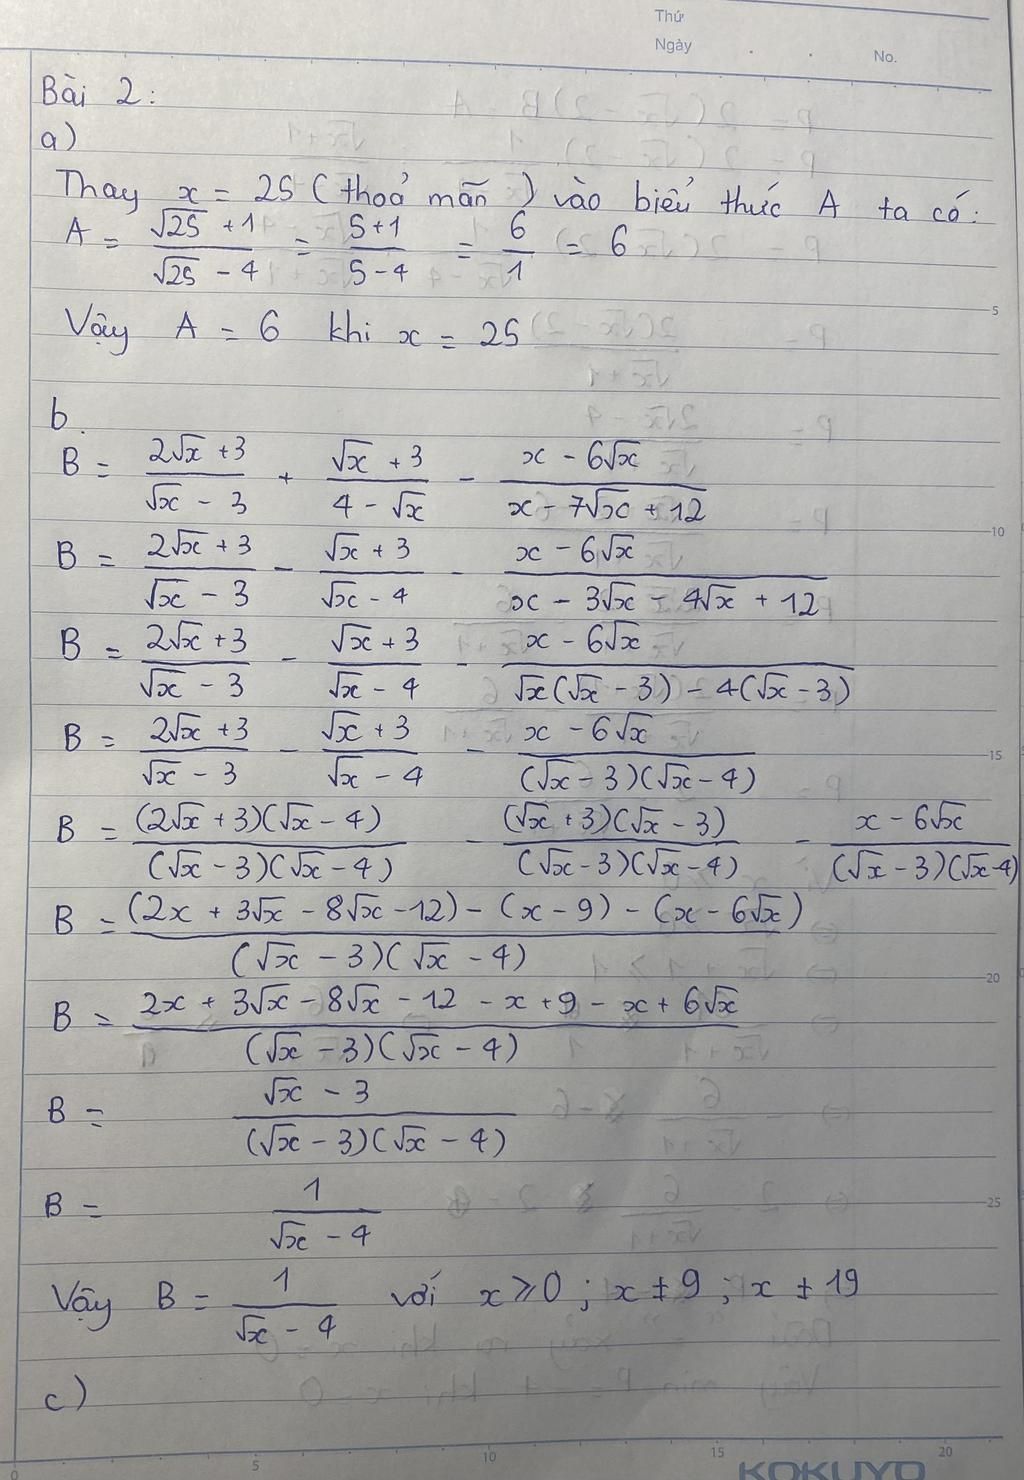 Thứ
Ngày . . No.
Bài 2:
a)
Thay x = 25 (thoả mãn) vào biểu thức A ta có:
A = (√25 + 1)/(√25 - 4) = (5+1)/(5-4) = 6/1 = 6
Vậy A = 6 khi x = 25
b.
B = (2√x + 3)/(√x - 3) + (√x + 3)/(4 - √x) - (x - 6√x)/(x - 7√x + 12)
B = (2√x + 3)/(√x - 3) - (√x + 3)/(√x - 4) - (x - 6√x)/(x - 3√x - 4√x + 12)
B = (2√x + 3)/(√x - 3) - (√x + 3)/(√x - 4) - (x - 6√x)/(√x(√x - 3) - 4(√x - 3))
B = (2√x + 3)/(√x - 3) - (√x + 3)/(√x - 4) - (x - 6√x)/((√x - 3)(√x - 4))
B = ((2√x + 3)(√x - 4))/((√x - 3)(√x - 4)) - ((√x + 3)(√x - 3))/((√x - 3)(√x - 4)) - (x - 6√x)/((√x - 3)(√x - 4))
B = ((2x + 3√x - 8√x - 12) - (x - 9) - (x - 6√x))/((√x - 3)(√x - 4))
B = (2x + 3√x - 8√x - 12 - x + 9 - x + 6√x)/((√x - 3)(√x - 4))
B = (√x - 3)/((√x - 3)(√x - 4))
B = 1/(√x - 4)
Vậy B = 1/(√x - 4) với x ≥ 0 ; x ≠ 9 ; x ≠ 19
c)
5
10
15
20
25
0 5 10 15 20
KOKUYO